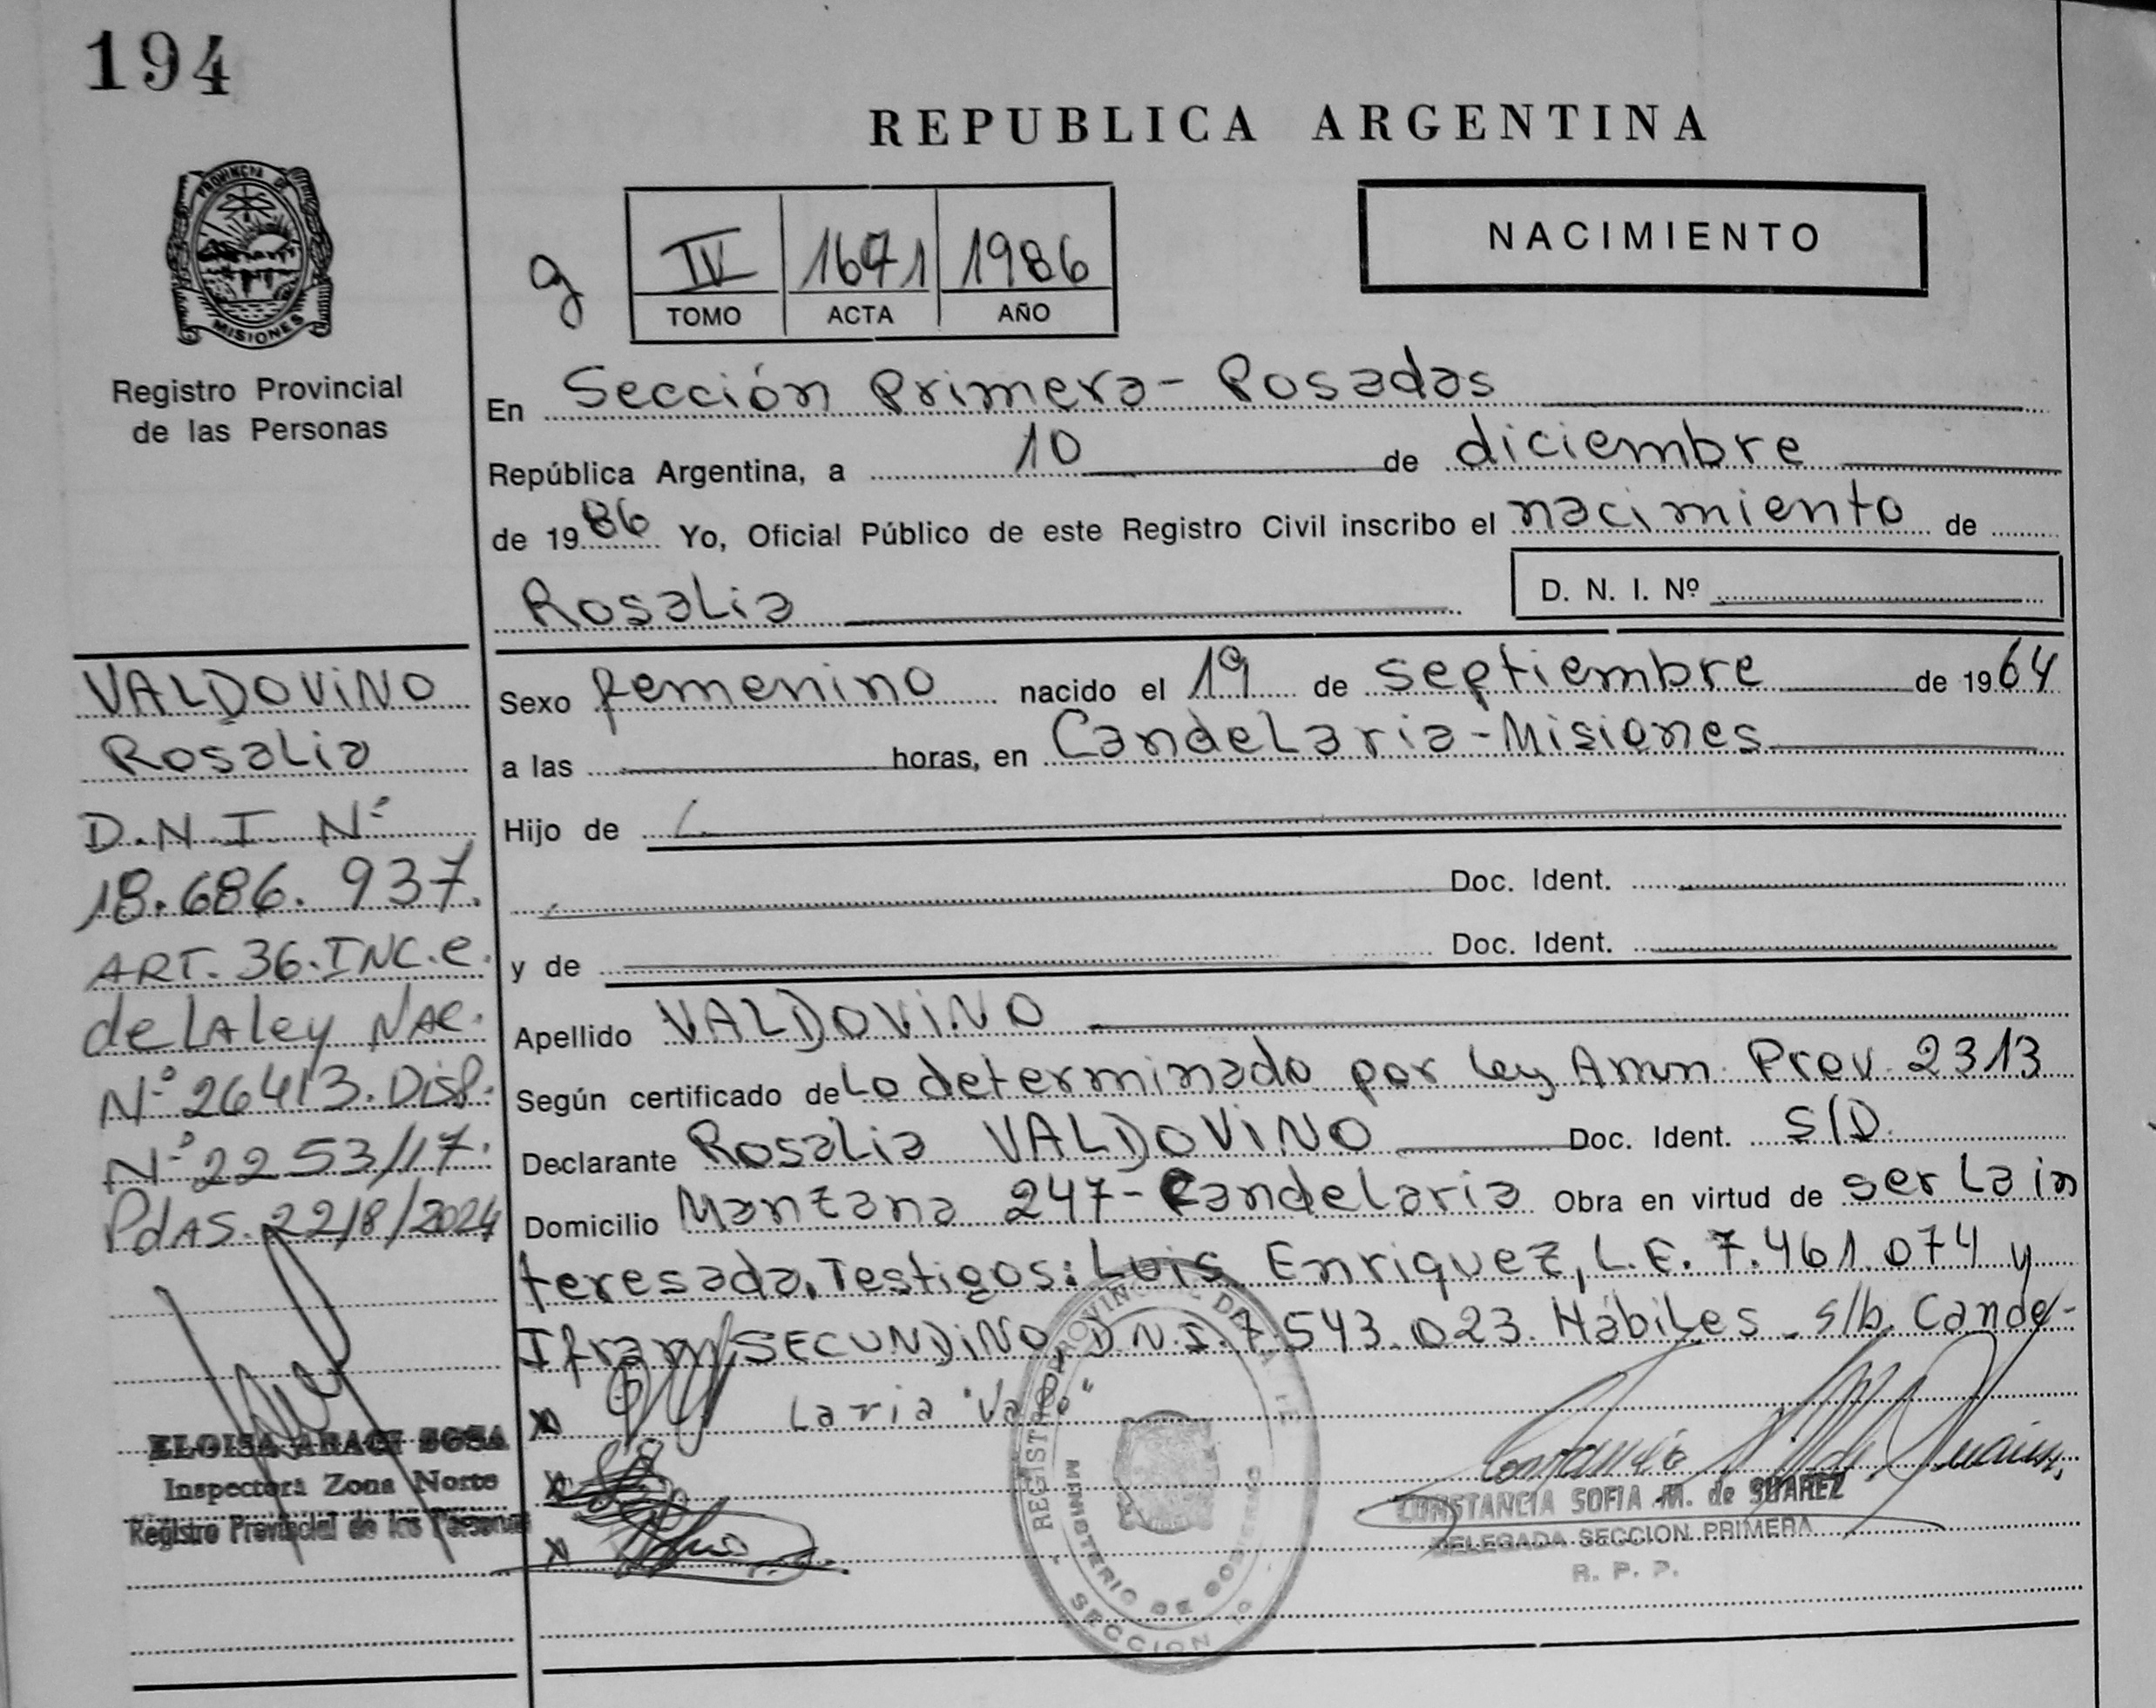 194
REPUBLICA ARGENTINA
PROVINCIA DE
MISIONES
Registro Provincial
de las Personas
g
IV 1671 1986
TOMO ACTA AÑO
NACIMIENTO
En Sección Primera - Posadas
República Argentina, a 10 de diciembre
de 1986 Yo, Oficial Público de este Registro Civil inscribo el nacimiento de
Rosalia D. N. I. Nº
VALDOVINO
Rosalia
D.N.I Nº
18.686.937.
ART. 36. INC. e.
de LA ley NAC.
Nº 26413. Disp.
Nº 2253/17.
PdAS. 22/8/2024
ELOISA ARACI SOSA
Inspectora Zona Norte
Registro Provincial de las Personas
Sexo femenino nacido el 19 de septiembre de 1964
a las horas, en Candelaria - Misiones
Hijo de
Doc. Ident.
y de Doc. Ident.
Apellido VALDOVINO
Según certificado de Lo determinado por ley Amn. Prov. 2313
Declarante Rosalia VALDOVINO Doc. Ident. S/D.
Domicilio Manzana 247 - Candelaria Obra en virtud de ser La in
teresada. Testigos: Luis Enriquez, L.E. 7.461.074 y
SECUNDINO, D.N.I. 7.543.023. Hábiles - s/b. Cande-
laria "Vale"
REGISTRO PROVINCIAL DE LAS
MINISTERIO DE GOBIERNO
SECCION 1º
CONSTANCIA SOFIA M. de SUAREZ
DELEGADA SECCION PRIMERA
R. P. P.